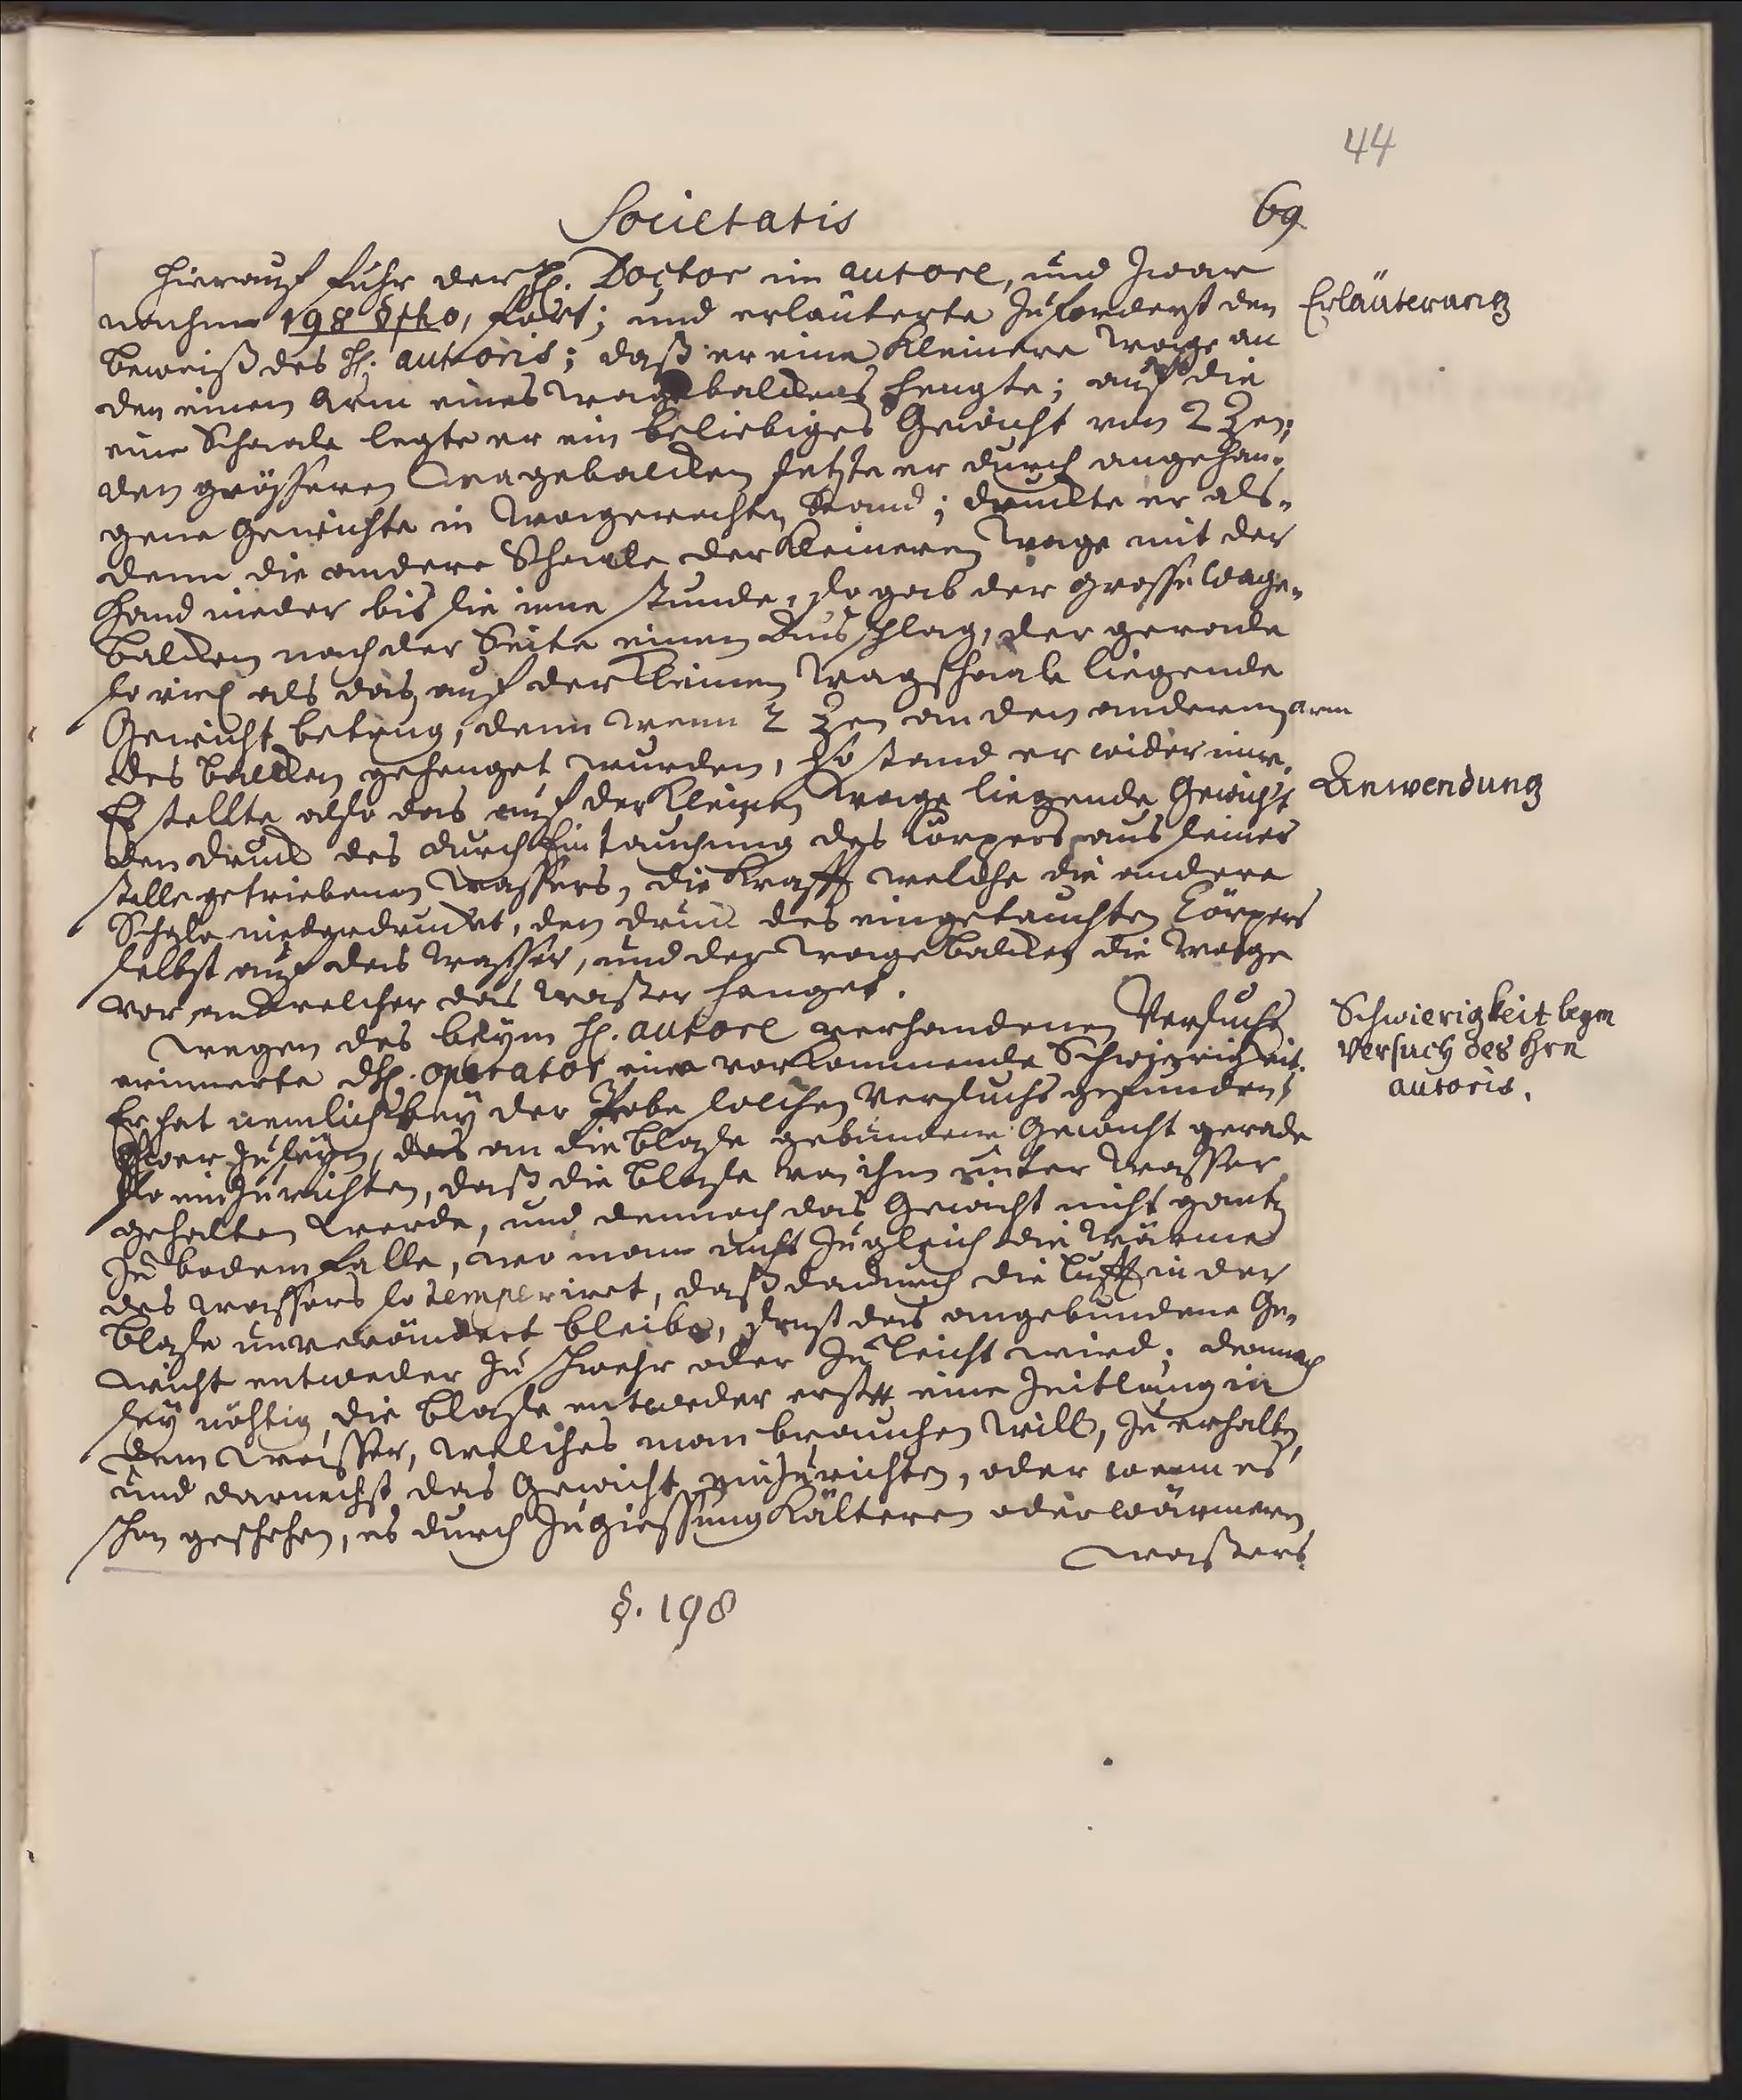 44
Societatis 69
Hierauf fuhr der H. Doctor im autore, und zwar
nachm 198 §pho, fort; und erläuterte zuforderst den
Erläuterung
beweiß des H. autoris; daß er eine kleinere Wage an
den einen Arm eines wagebalckens hengte; auf die
eine Schaale legte er ein beliebiges Gewicht von 2 Zen;
den grösseren Wagebalcken setzte er durch angehan-
gene Gewichte in wagerechten Stand; druckte er als-
denn die andere Schaale der kleineren Wage mit der
Hand nieder bis sie inne stunde, so gab der grosse Wage-
balcken nach der Seite einen Ausschlag, der gerade
so viel als das auf der kleinen Wagschaale liegende
Gewicht betrug, denn wenn 2 Zen an den anderen arm
des balcken gehenget wurden, so stand er wider inne.
Es stellte also das auf der kleinen Wage liegende Gewicht
Anwendung
den druck des durch Eintauchung des Cörpers aus seiner
stelle getriebenen Wassers, die Krafft welche die andere
Schale niederdruckt, den druck des eingetauchten Cörpers
selbst auf das Wasser, und der Wagebalcken die Wage
vor, an welcher das Wasser hanget.
Wegen des beym H. autore verhandenen Versuchs
Schwierigkeit beym
Versuch des Hrn
autoris.
erinnerte dH. operator eine vorkommende Schwierigkeit.
Er hat nemlich bey der Probe solchen Versuchs gefunden,
schwer zu seyn, das an die blase gebundene Gewicht gerade
so einzurichten, daß die blase von ihm unter Wasser
gehalten werde, und dennoch das Gewicht nicht gantz
zu bodem falle, wo man nicht zugleich die Wärme
des Wassers so temperiret, daß dadurch die Lufft in der
blase unverändert bleibe, sonst das angebundene Ge-
wicht entweder zu schwehr oder zu leicht wird; demnach
sey nöhtig, die blase entweder erst eine Zeitlang in
dem Wasser, welches man brauchen will, zu erhalten,
und darnechst das Gewicht einzurichten, oder wenn es
schon geschehen, es durch Zugiessung kälteren oder wärmern
Wassers
§. 198